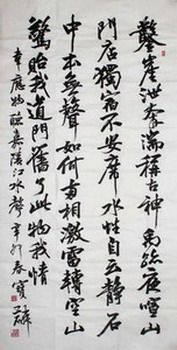 鑿崖泄奔湍稱古神禹跡夜喧山
門店獨宿不安席水性自云靜石
中本無聲如何兩相激雷轉空山
驚貽我道門舊了此物我情
韋應物聽嘉陵江水聲辛卯春寶麟